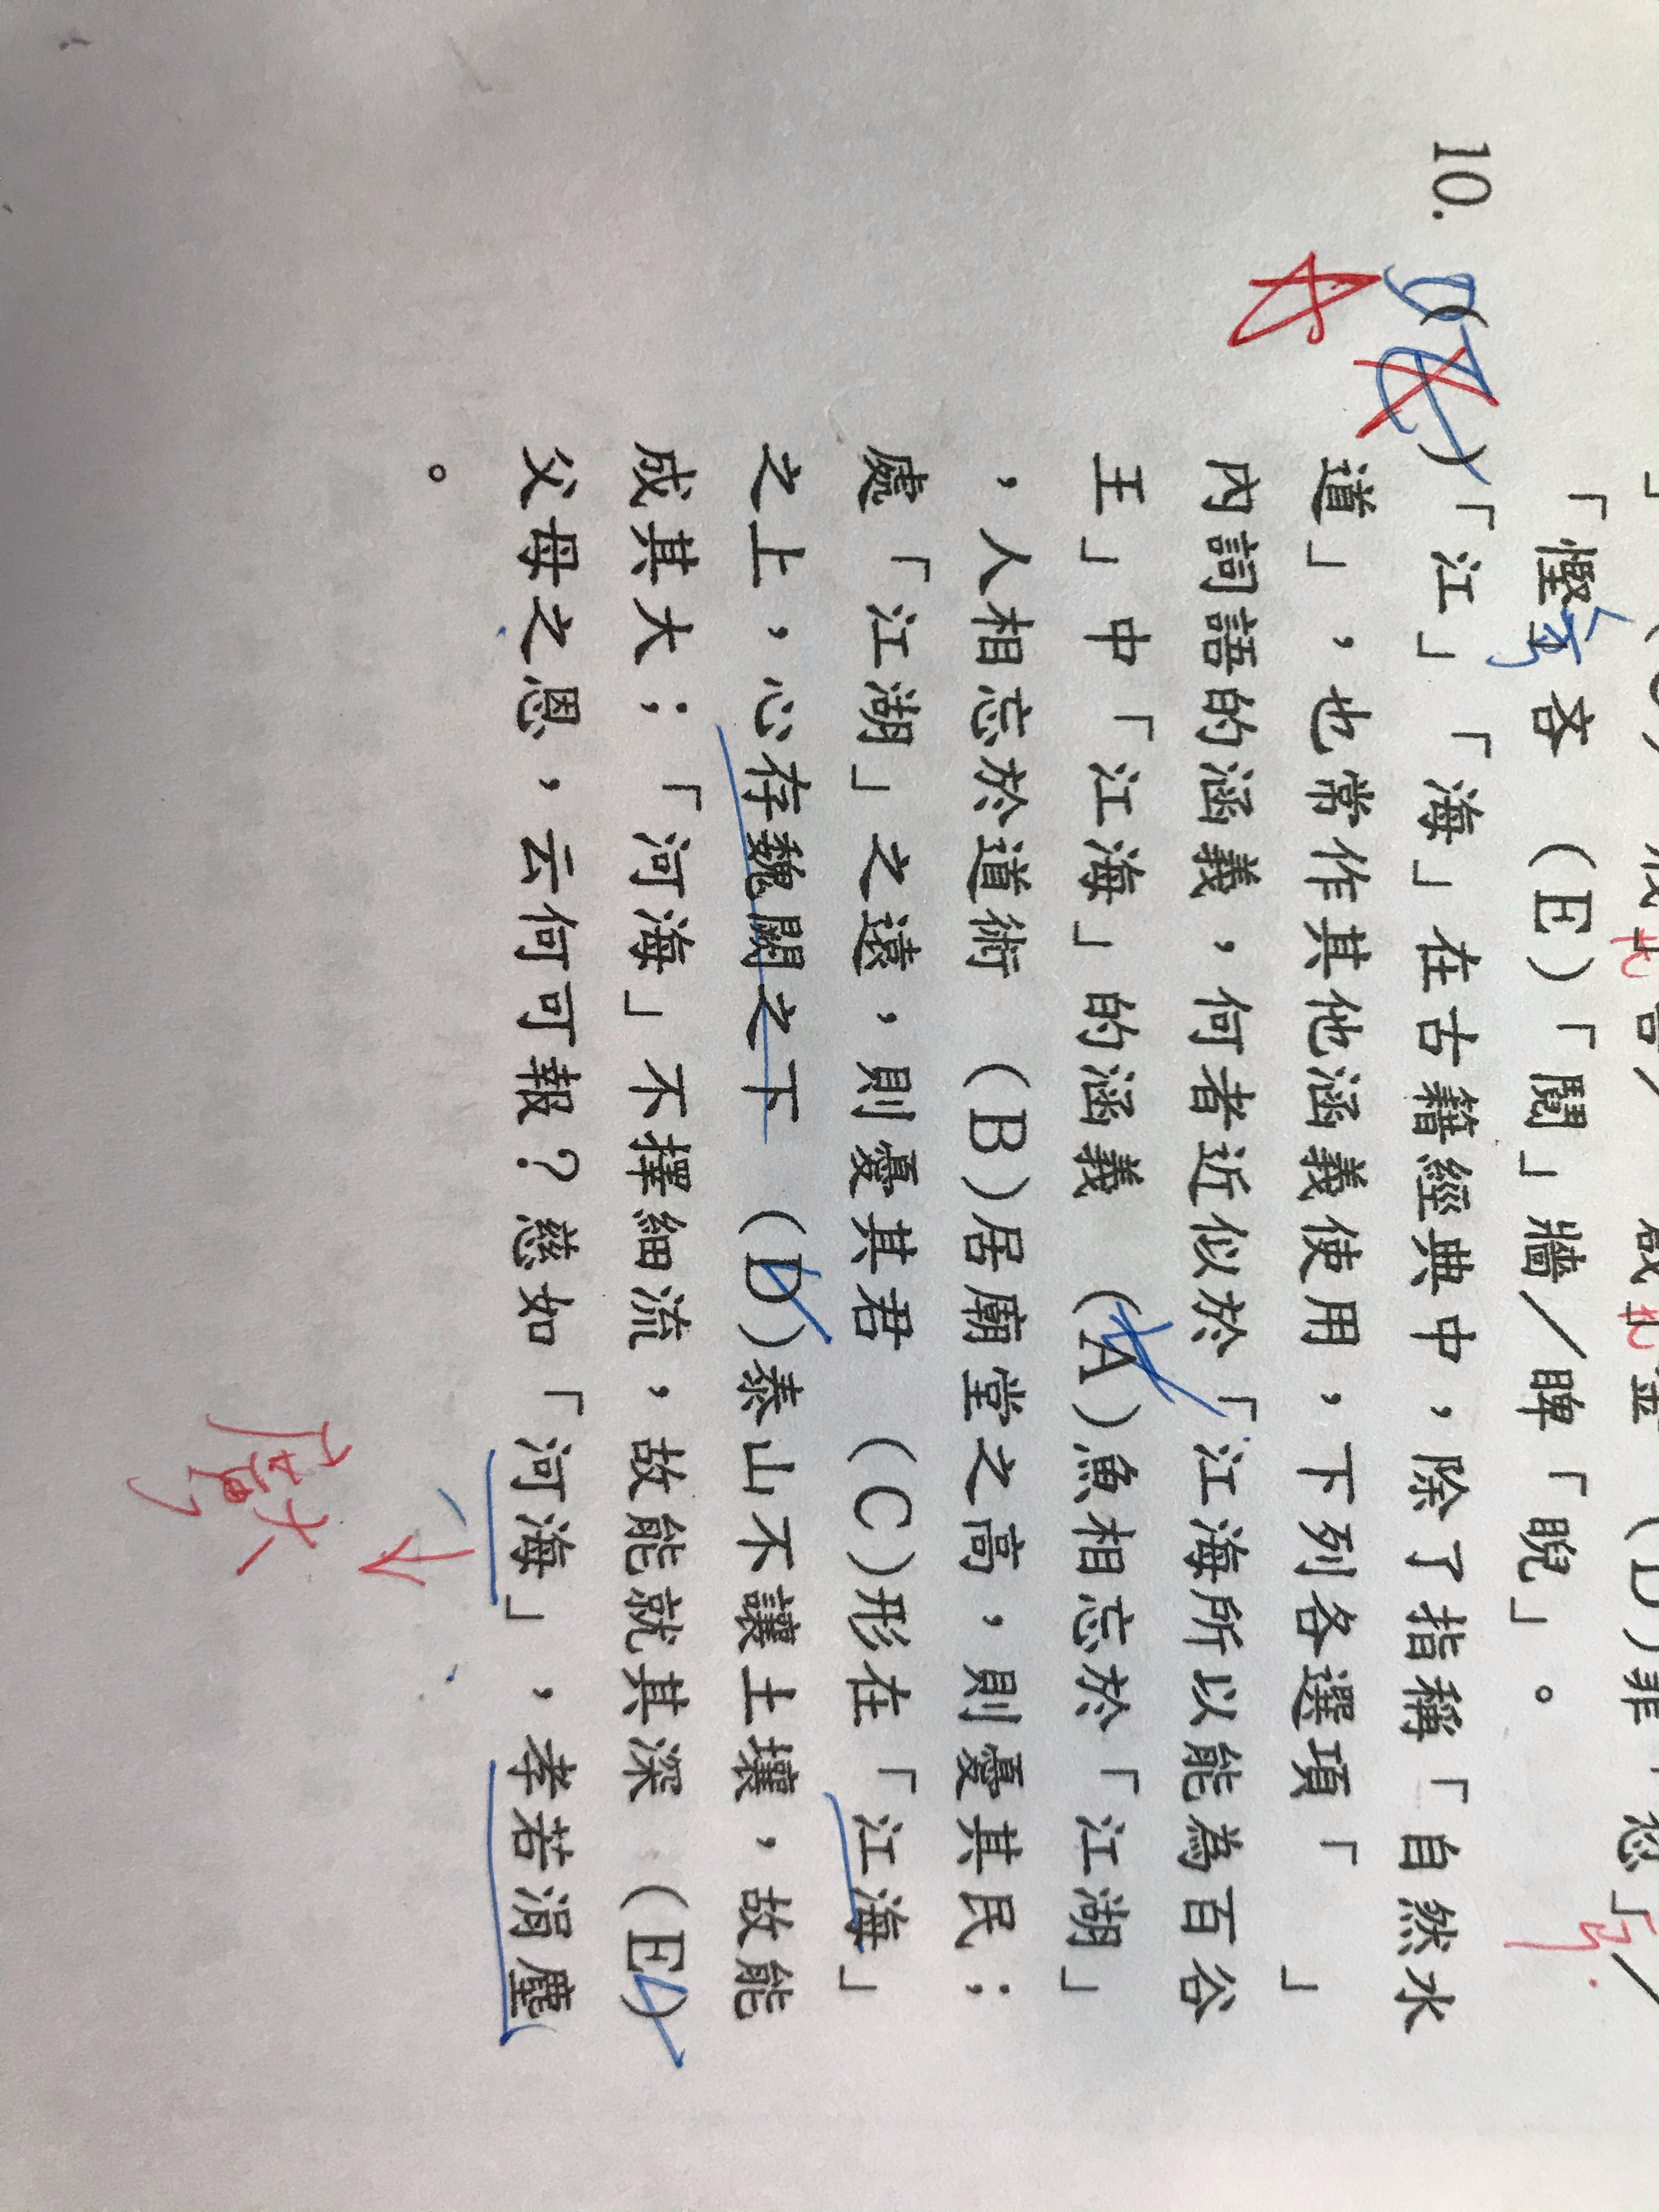 「慳」吝　(E)「鬩」牆／睥「睨」。
10. ( )「江」「海」在古籍經典中，除了指稱「自然水
道」，也常作其他涵義使用，下列各選項「　」
內詞語的涵義，何者近似於「江海所以能為百谷
王」中「江海」的涵義　(A)魚相忘於「江湖」
，人相忘於道術　(B)居廟堂之高，則憂其民；
處「江湖」之遠，則憂其君　(C)形在「江海」
之上，心存魏闕之下　(D)泰山不讓土壤，故能
成其大；「河海」不擇細流，故能就其深　(E)
父母之恩，云何可報？慈如「河海」，孝若涓塵
。
廣大